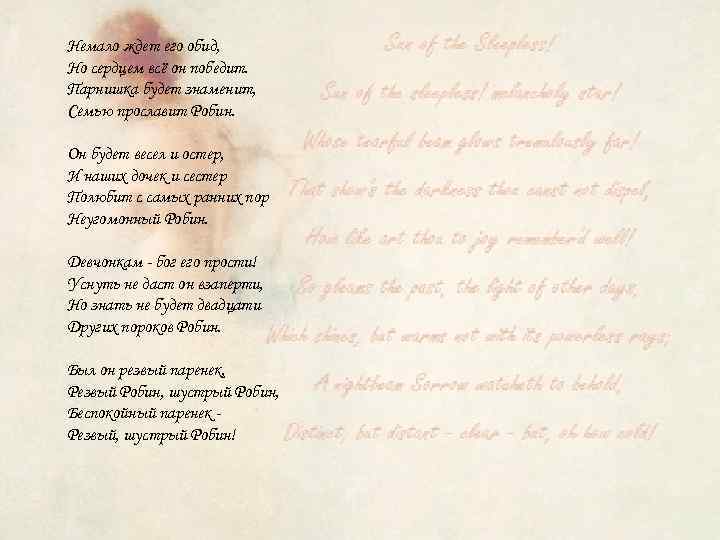 Немало ждет его обид,
Но сердцем всё он победит.
Парнишка будет знаменит,
Семью прославит Робин.
Он будет весел и остер,
И наших дочек и сестер
Полюбит с самых ранних пор
Неугомонный Робин.
Девчонкам - бог его прости!
Уснуть не даст он взаперти,
Но знать не будет двадцати
Других пороков Робин.
Был он резвый паренек,
Резвый Робин, шустрый Робин,
Беспокойный паренек -
Резвый, шустрый Робин!
Sun of the Sleepless!
Sun of the sleepless! melancholy star!
Whose tearful beam glows tremulously far!
That show's the darkness thou canst not dispel,
How like art thou to joy remember'd well!
So gleams the past, the light of other days,
Which shines, but warms not with its powerless rays;
A nightbeam Sorrow watcheth to behold,
Distinct, but distant - clear - but, oh how cold!